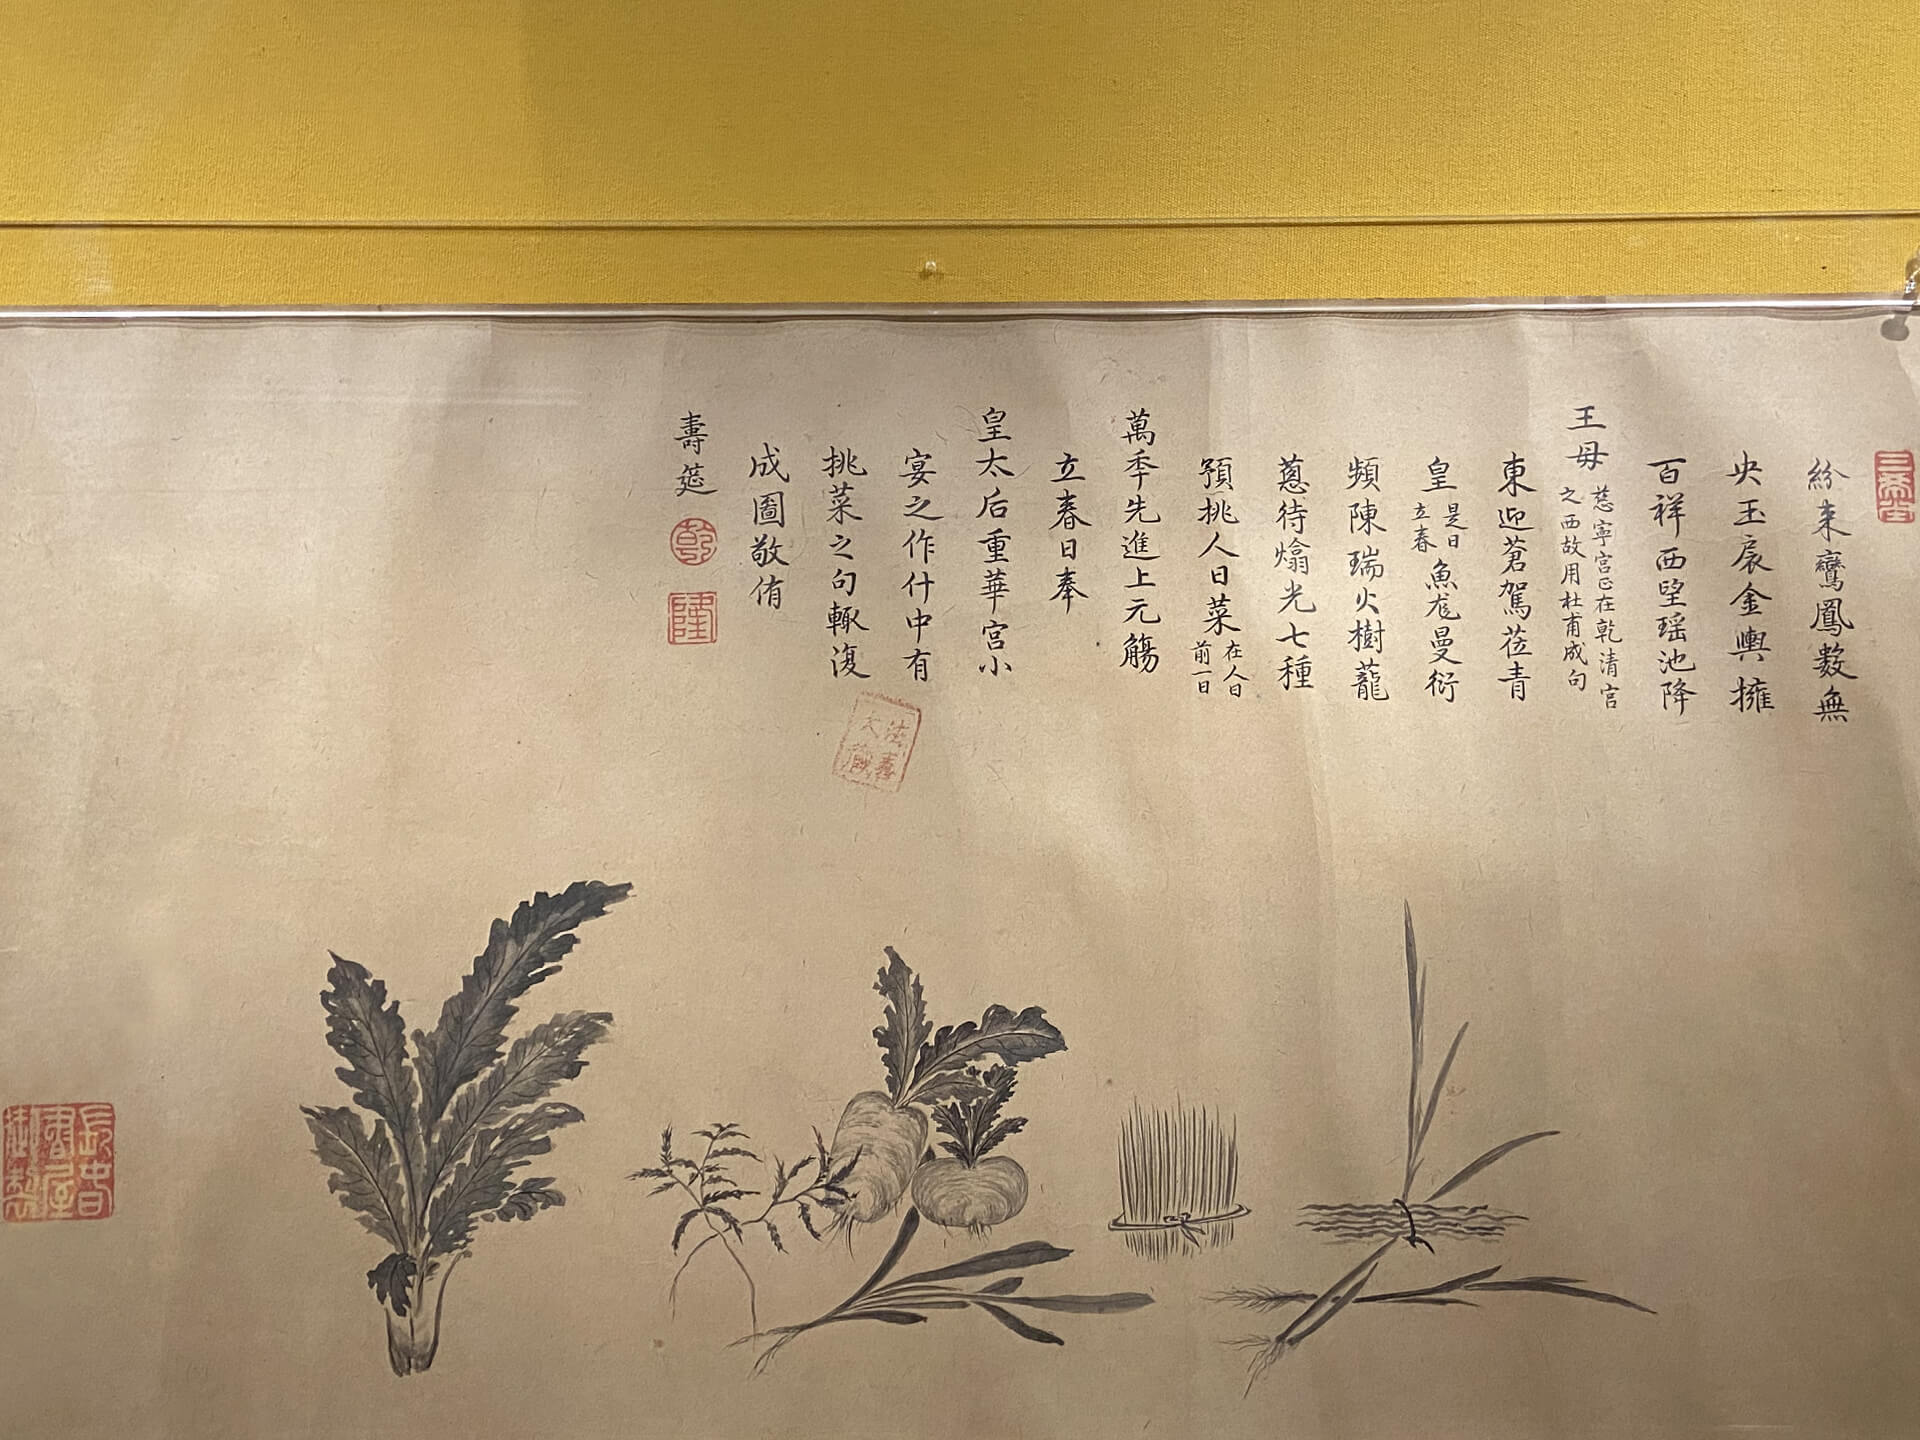 紛来鸞鳳數無
央玉扆金輿擁
百祥西望瑶池降
王母慈寧宫正在乾清宫
之西故用杜甫成句
東迎蒼駕莅青
皇是日
立春魚龙曼衍
頻陳瑞火樹蘢
蔥待爚光七種
預挑人日菜在人日
前一日
萬年先進上元觴
立春日奉
皇太后重華宫小
宴之作什中有
挑菜之句輒復
成圖敬侑
壽筵
乾
隆